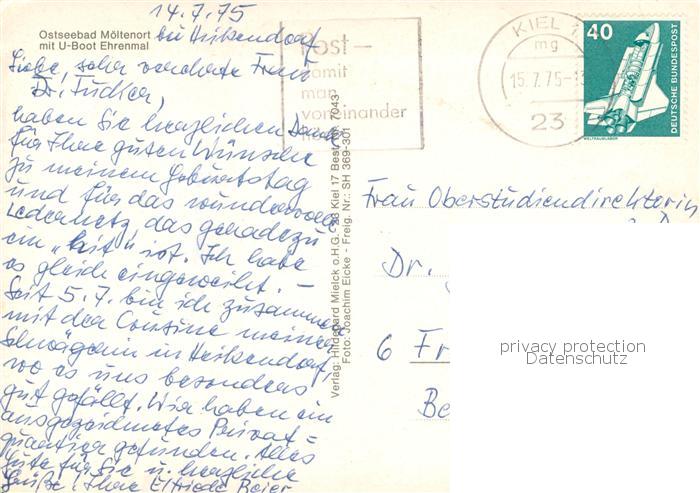 14.7.75
Ostseebad Möltenort
mit U-Boot Ehrenmal
bei Heikendorf
Liebe, sehr verehrte Frau
Dr.
haben Sie herzlichen Dank
für Ihre guten Wünsche
zu meinem Geburtstag
und für das wundervolle
Ledernetz, das geradezu
ein "Hit" ist. Ich habe
es gleich eingeweiht. –
Seit 5.7. bin ich zusammen
mit der Cousine meiner
Schwägerin in Heikendorf,
wo es uns besonders
gut gefällt. Wir haben ein
ausgezeichnetes Privat-
quartier gefunden. Alles
Gute für Sie u. herzliche
Grüße! Ihre Elfriede Beier
Verlag: Hildegard Mielck o.H.G. 23 Kiel 17 Best. Nr. 7043
Foto: Joachim Eicke - Freig. Nr.: SH 369-301
Post –
damit
man
voneinander
KIEL 1
mg
15.7.75-13
23
40
DEUTSCHE BUNDESPOST
WELTRAUMLABOR
Frau Oberstudiendirektorin
Dr.
6 Fr
Be
privacy protection
Datenschutz